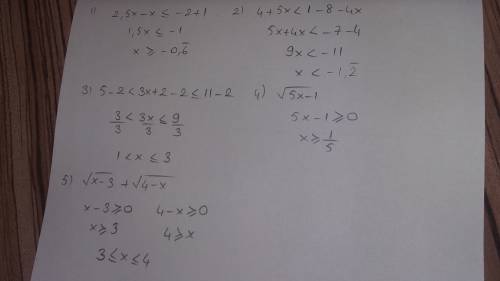 1) 2,5x-x ≤ -2+1
1,5x ≤ -1
x ≥ -0,6̅
2) 4+5x < 1-8-4x
5x+4x < -7-4
9x < -11
x < -1,2̅
3) 5-2 < 3x+2-2 ≤ 11-2
3/3 < 3x/3 ≤ 9/3
1 < x ≤ 3
4) √(5x-1)
5x-1 ≥ 0
x ≥ 1/5
5) √(x-3) + √(4-x)
x-3 ≥ 0 4-x ≥ 0
x ≥ 3 4 ≥ x
3 ≤ x ≤ 4